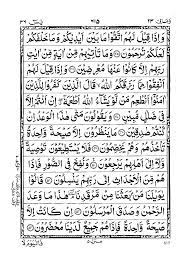 يٰسٓ ٣٦
وَاِذَا قِيْلَ لَهُمُ اتَّقُوْا مَا بَيْنَ اَيْدِيْكُمْ وَمَا خَلْفَكُمْ
لَعَلَّكُمْ تُرْحَمُوْنَ ۝ وَمَا تَاْتِيْهِمْ مِّنْ اٰيَةٍ مِّنْ اٰيٰتِ
رَبِّهِمْ اِلَّا كَانُوْا عَنْهَا مُعْرِضِيْنَ ۝ وَاِذَا قِيْلَ لَهُمْ
اَنْفِقُوْا مِمَّا رَزَقَكُمُ اللّٰهُ قَالَ الَّذِيْنَ كَفَرُوْا لِلَّذِيْنَ
اٰمَنُوْٓا اَنُطْعِمُ مَنْ لَّوْ يَشَآءُ اللّٰهُ اَطْعَمَهٗٓ اِنْ اَنْتُمْ اِلَّا
فِيْ ضَلٰلٍ مُّبِيْنٍ ۝ وَيَقُوْلُوْنَ مَتٰى هٰذَا الْوَعْدُ اِنْ
كُنْتُمْ صٰدِقِيْنَ ۝ مَا يَنْظُرُوْنَ اِلَّا صَيْحَةً وَّاحِدَةً
تَاْخُذُهُمْ وَهُمْ يَخِصِّمُوْنَ ۝ فَلَا يَسْتَطِيْعُوْنَ تَوْصِيَةً
وَّلَآ اِلٰٓى اَهْلِهِمْ يَرْجِعُوْنَ ۝ وَنُفِخَ فِي الصُّوْرِ فَاِذَا
هُمْ مِّنَ الْاَجْدَاثِ اِلٰى رَبِّهِمْ يَنْسِلُوْنَ ۝ قَالُوْا
يٰوَيْلَنَا مَنْۢ بَعَثَنَا مِنْ مَّرْقَدِنَا هٰذَا مَا وَعَدَ
الرَّحْمٰنُ وَصَدَقَ الْمُرْسَلُوْنَ ۝ اِنْ كَانَتْ اِلَّا
صَيْحَةً وَّاحِدَةً فَاِذَا هُمْ جَمِيْعٌ لَّدَيْنَا مُحْضَرُوْنَ ۝